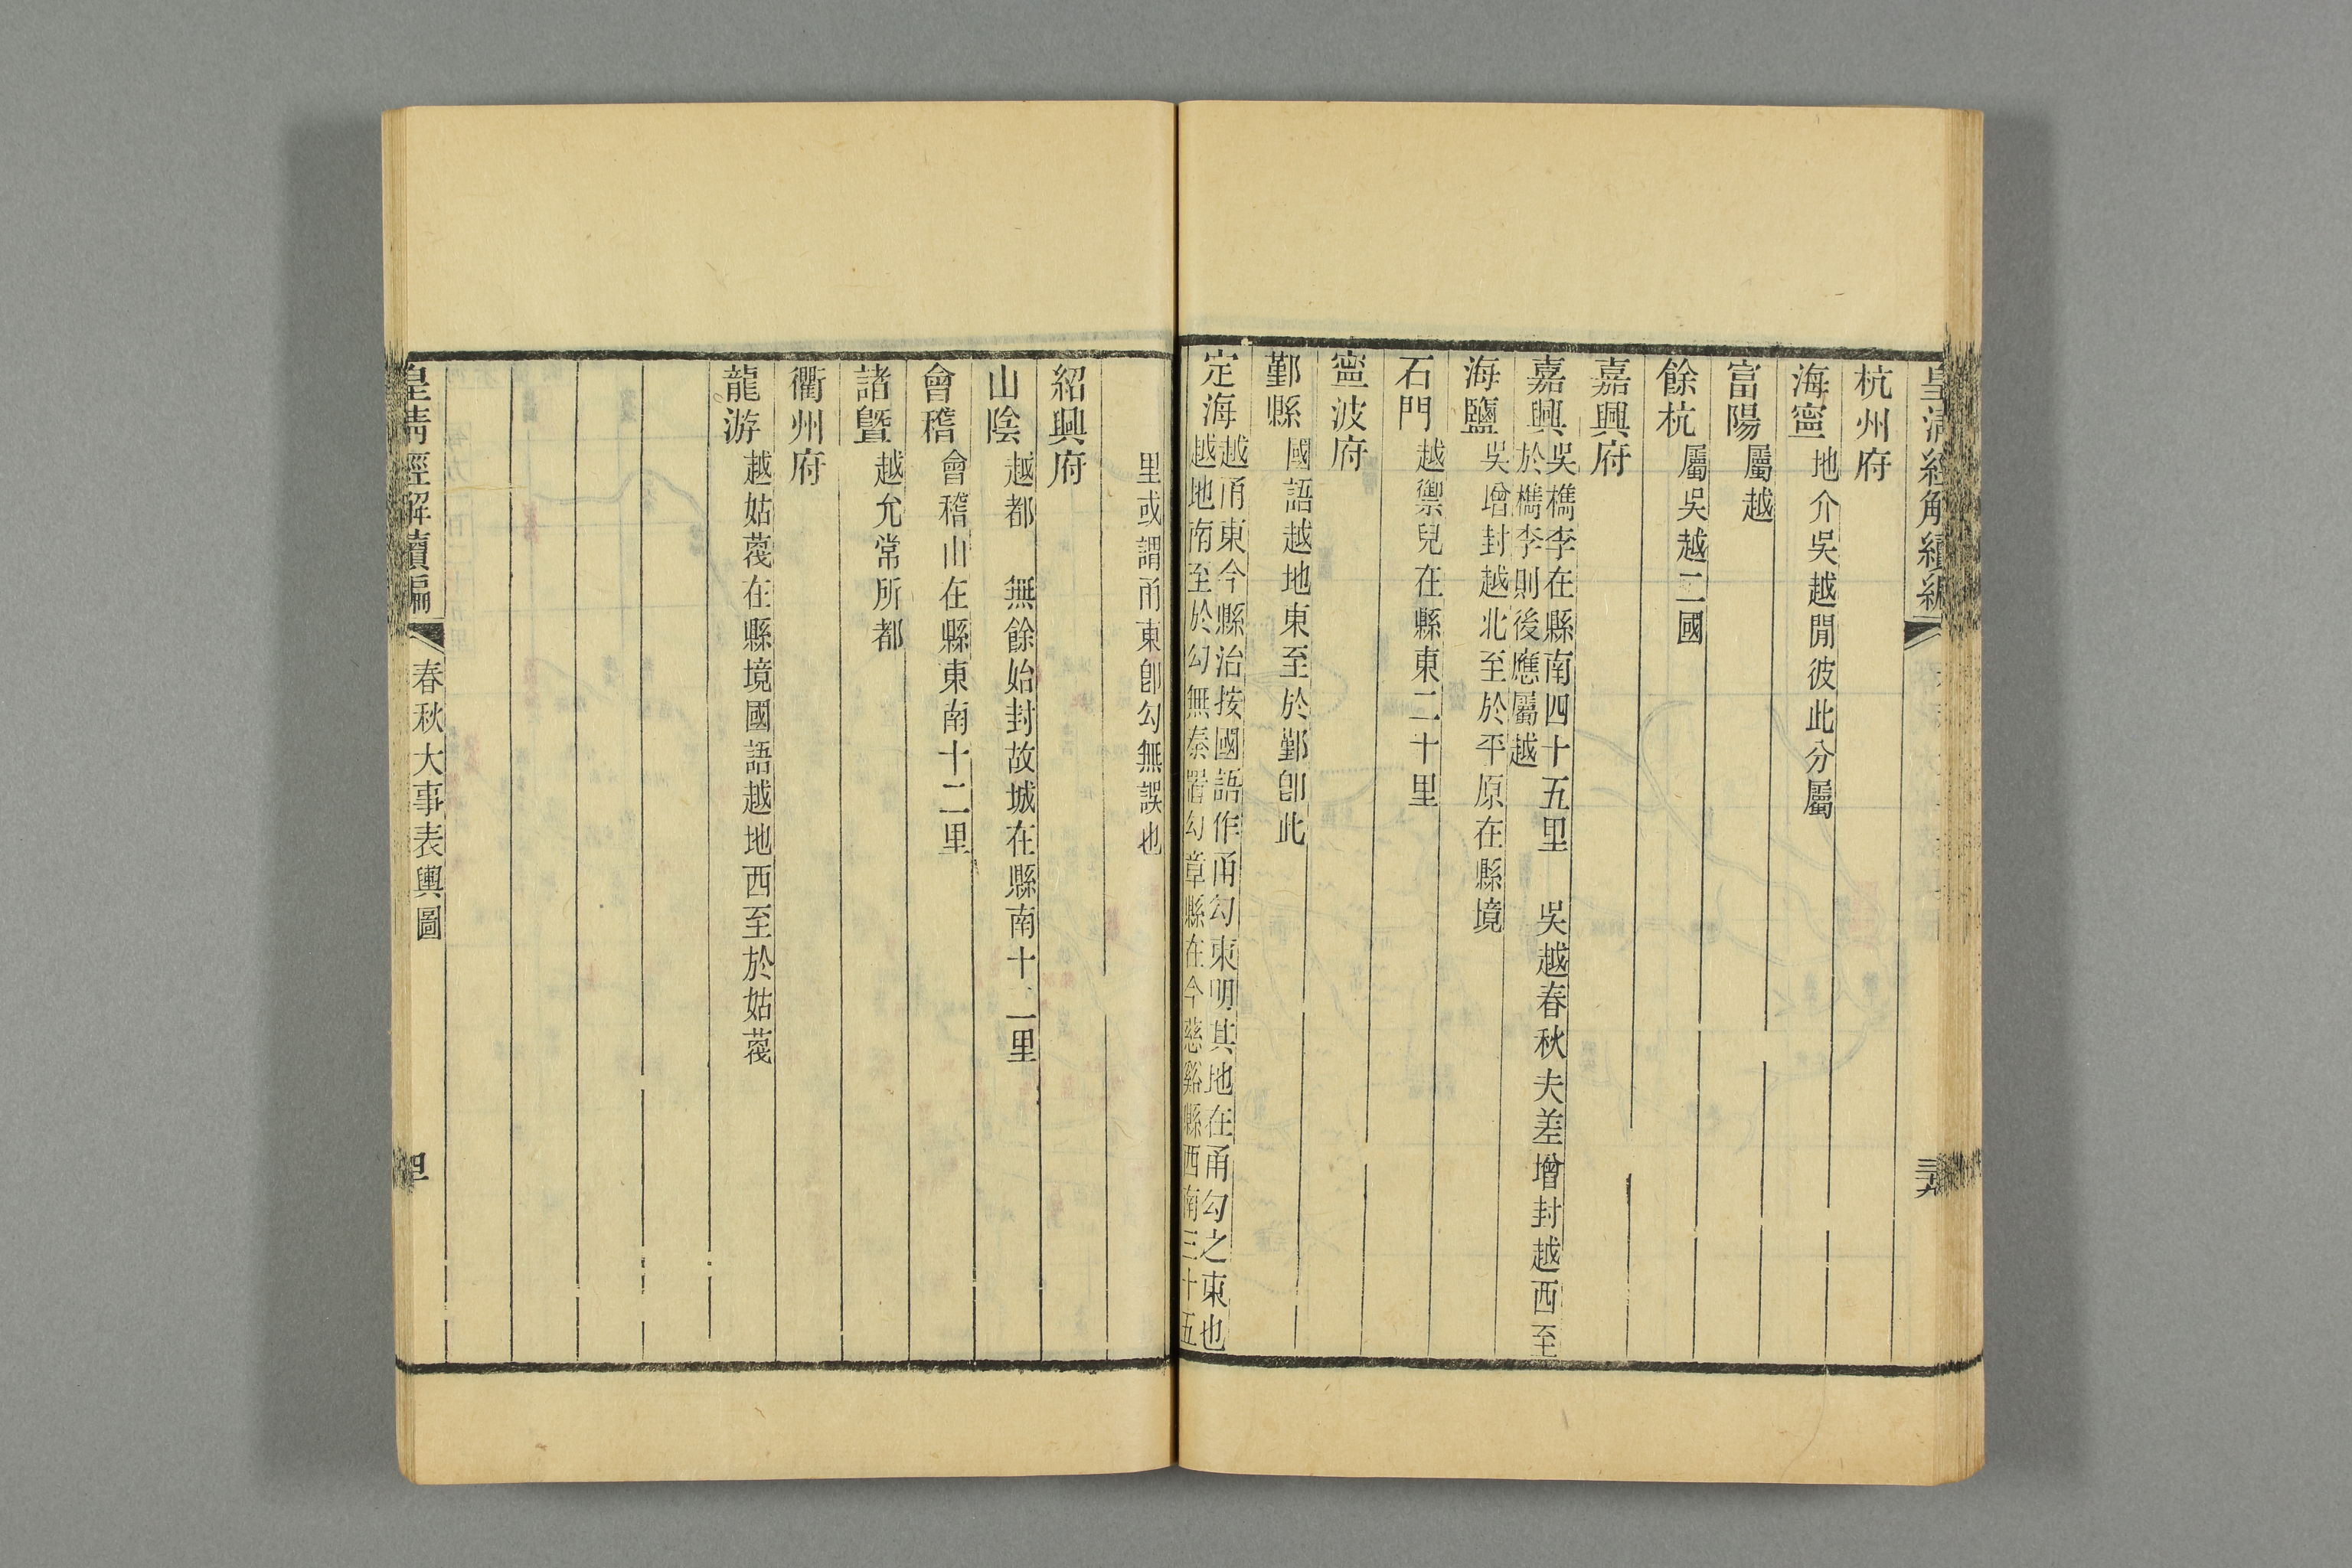 皇清經解續編
杭州府
海寧 地介吳越閒彼此分屬
富陽 屬越
餘杭 屬吳越二國
嘉興府
嘉興 吳檇李在縣南四十五里 吳越春秋夫差增封越西至
於檇李則後應屬越
海鹽 吳增封越北至於平原在縣境
石門 越禦兒在縣東二十里
寧波府
鄞縣 國語越地東至於鄞卽此
定海 越甬東今縣治按國語作甬勾東明其地在甬勾之東也
越地南至於勾無秦置勾章縣在今慈谿縣西南三十五
里或謂甬東卽勾無誤也
紹興府
山陰 越都 無餘始封故城在縣南十二里
會稽 會稽山在縣東南十二里
諸曁 越允常所都
衢州府
龍游 越姑蔑在縣境國語越地西至於姑蔑
皇清經解續編 春秋大事表輿圖